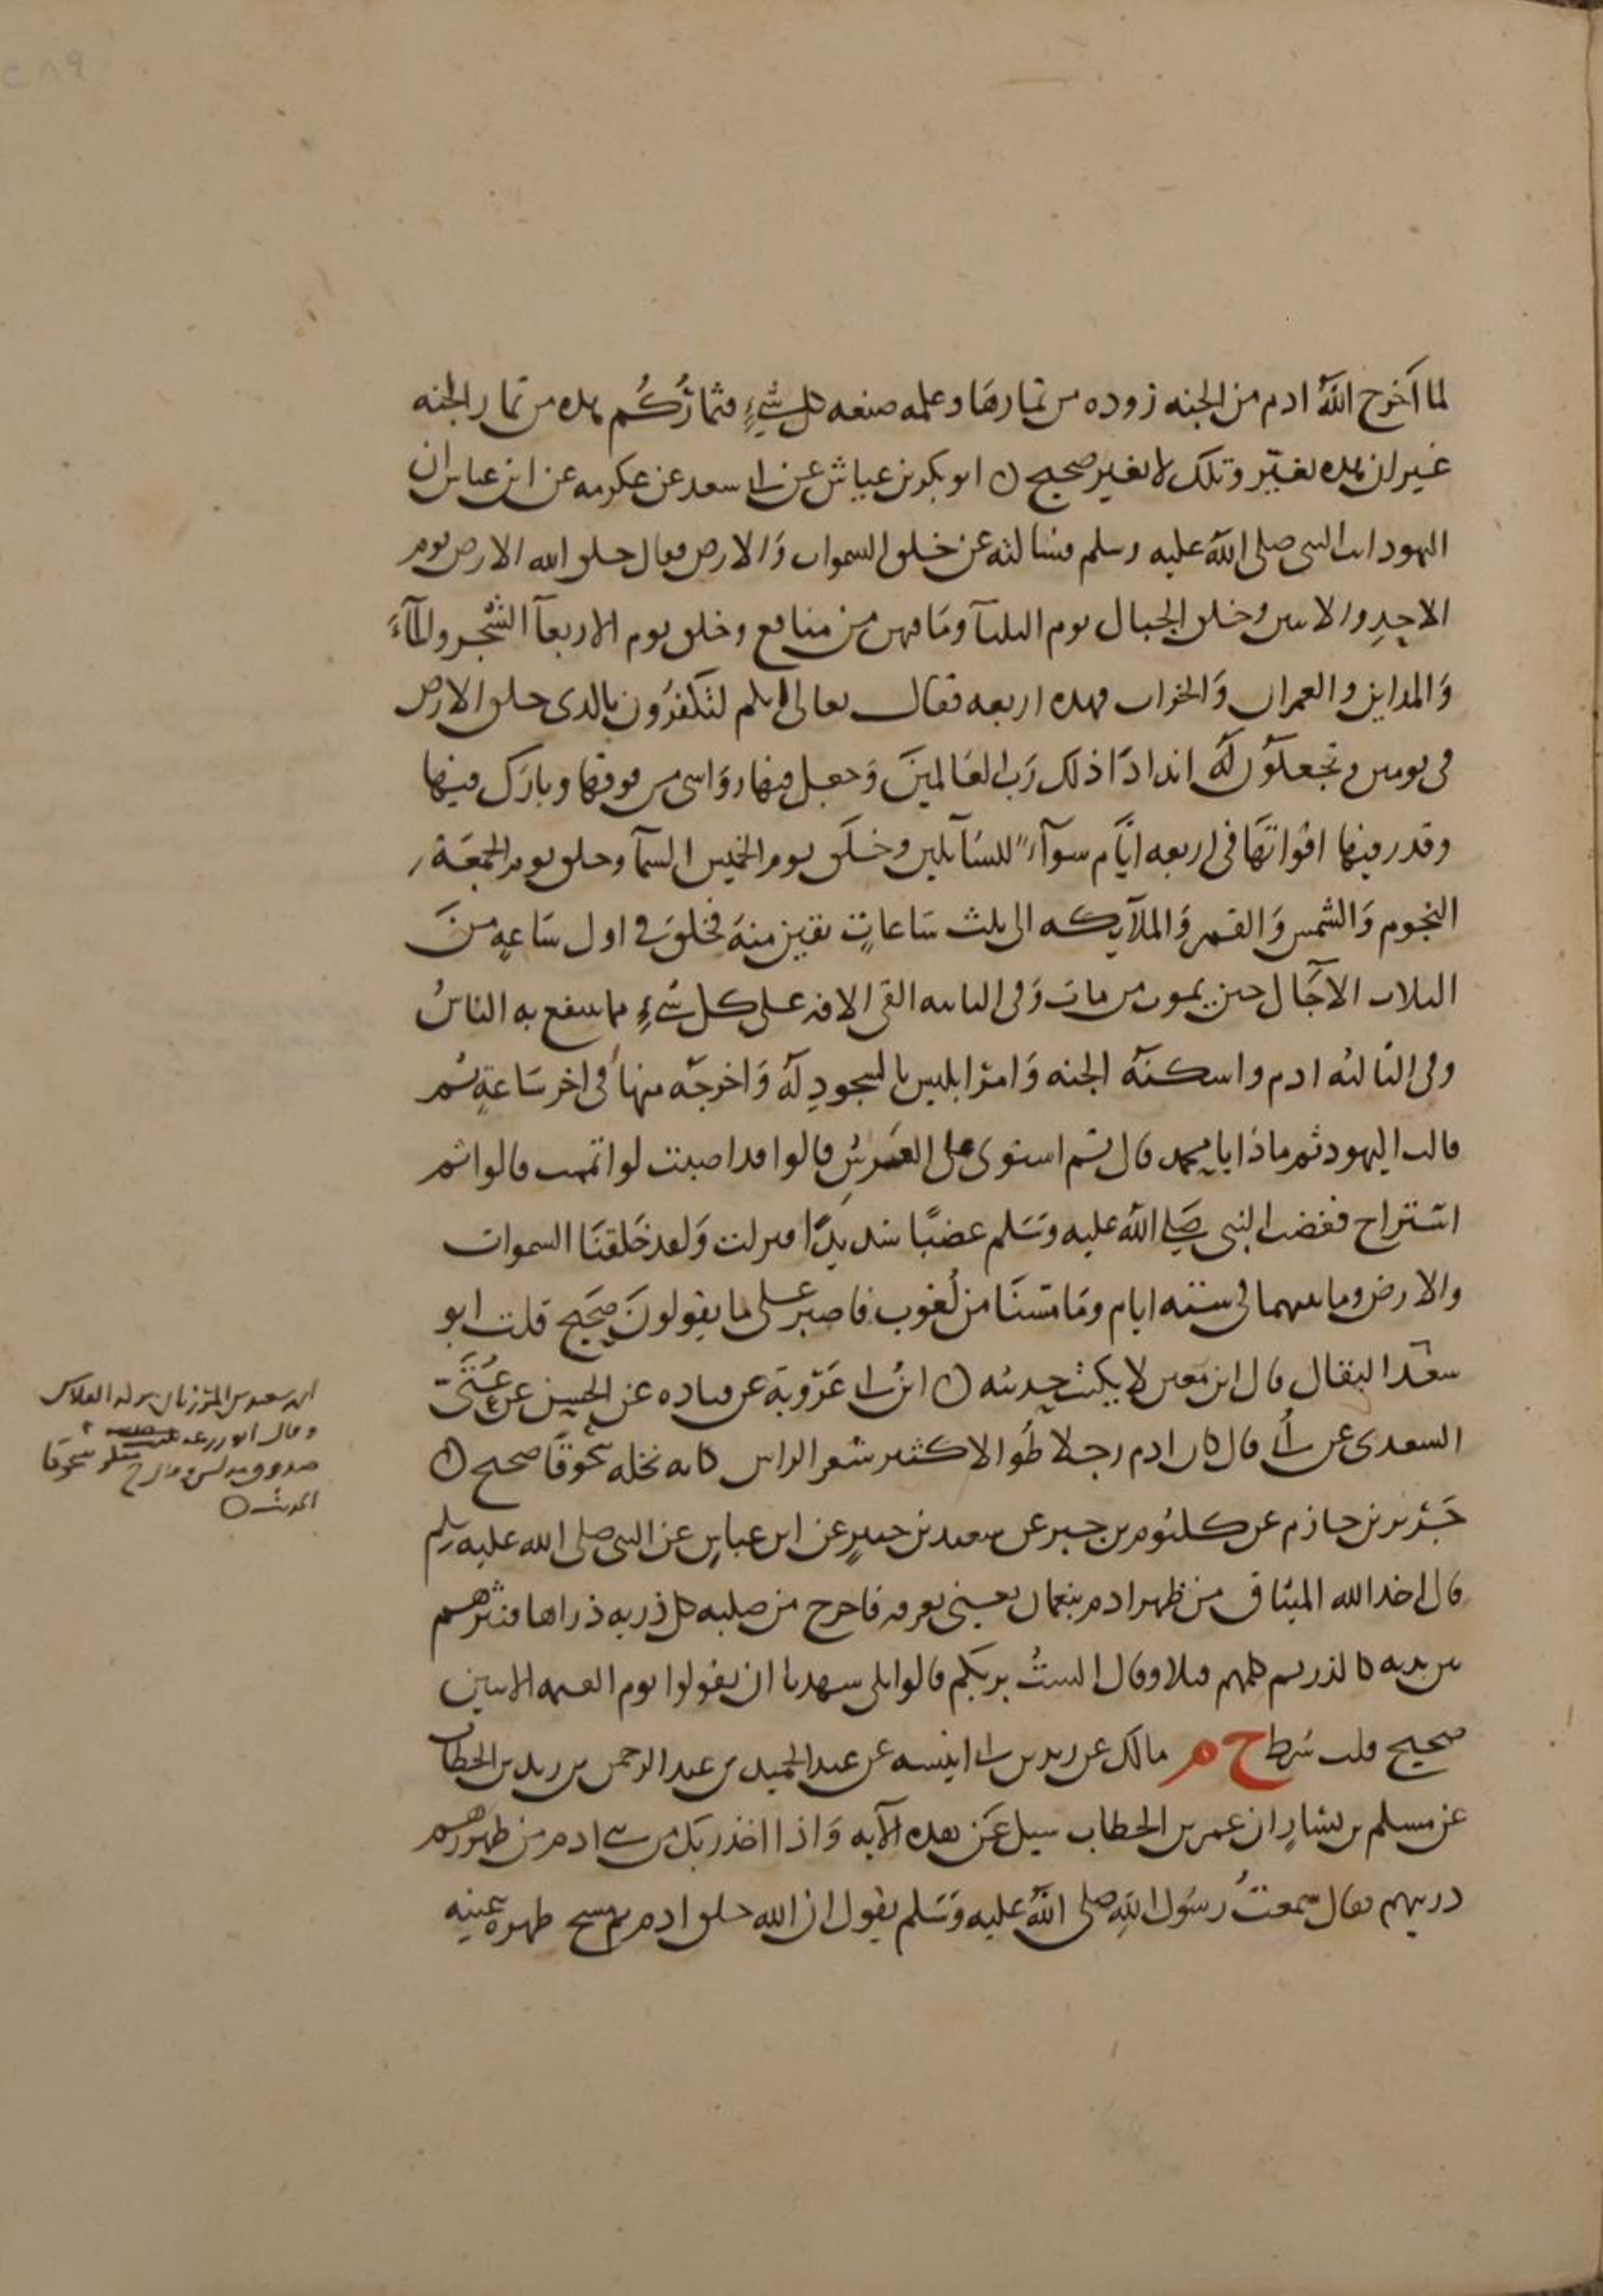 لما اخرج الله ادم من الجنه زوده من ثمارها وعلمه صنعه كل شيء فثماركم هذه من ثمار الجنه
غير ان هذه تغير وتلك لا تغير صحيح ابو بكر بن عياش عن ابي سعد عن عكرمه عن ابن عباس ان
اليهود اتت النبي صلى الله عليه وسلم فسالته عن خلق السموات والارض فقال خلق الله الارض يوم
الاحد والاثنين وخلق الجبال يوم الثلثا وما فيهن من منافع وخلق يوم الاربعا الشجر والماء
والمداين والعمران والخراب فهذه اربعه فقال تعالى ائنكم لتكفرون بالذي خلق الارض
في يومين وتجعلون له اندادا ذلك رب العالمين وجعل فيها رواسي من فوقها وبارك فيها
وقدر فيها اقواتها في اربعه ايام سوآء للسآيلين وخلق يوم الخميس السمآ وخلق يوم الجمعة
النجوم والشمس والقمر والملآيكه الى ثلث ساعات بقين منه فخلق في اول ساعه من
الثلاث الآجال حين يموت من مات وفي الثانيه القى الافه على كل شيء مما ينتفع به الناس
وفي الثالثه ادم واسكنه الجنه وامر ابليس بالسجود له واخرجه منها في اخر ساعة ثم
قالت اليهود ثم ماذا يا محمد قال ثم استوى على العرش قالوا قد اصبت لو اتممت قالوا ثم
استراح فغضب النبي صلى الله عليه وسلم غضبا شديدا فنزلت ولقد خلقنا السموات
والارض وما بينهما في ستة ايام وما مسنا من لغوب فاصبر على ما يقولون صحيح قلت ابو
سعد البقال قال ابن معين لا يكتب حديثه ابن ابي عروبة عن قتاده عن الحسن عن عتي
السعدي عن ابي قال كان ادم رجلا طوالا كثير شعر الراس كانه نخله سحوقا صحيح
جرير بن حازم عن كلثوم بن جبر عن سعيد بن جبير عن ابن عباس عن النبي صلى الله عليه وسلم
قال اخذ الله الميثاق من ظهر ادم بنعمان يعني بعرفه فاخرج من صلبه كل ذريه ذراها فنثرهم
بين يديه كالذر ثم كلمهم قبلا وقال الست بربكم قالوا بلى شهدنا ان يقولوا يوم القيمه الايتين
صحيح قلت شرط خ م مالك عن زيد بن ابي انيسه عن عبد الحميد بن عبد الرحمن بن زيد بن الخطاب
عن مسلم بن يسار ان عمر بن الخطاب سيل عن هذه الآيه واذا اخذ ربك من بني ادم من ظهورهم
ذريتهم فقال سمعت رسول الله صلى الله عليه وسلم يقول ان الله خلق ادم ثم مسح ظهره بيمينه
سعيد بن المرزبان تركه الفلاس
وقال ابو زرعه
صدوق مدلس وقال خ منكر
الحديث
سحوقا